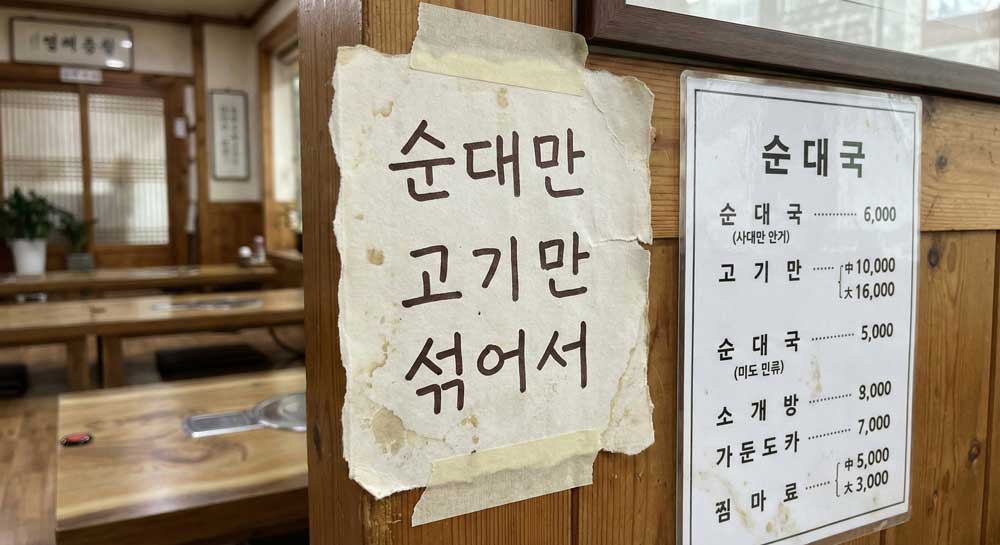 순대만
고기만
섞어서
순대국
순대국 ········ 6,000
(사대만 안거)
고기만 ······ 中 10,000
大 16,000
순대국 ········ 5,000
(미도 민류)
소개방 ········ 8,000
가둔도카 ········ 7,000
찜마료 ······ 中 5,000
大 3,000